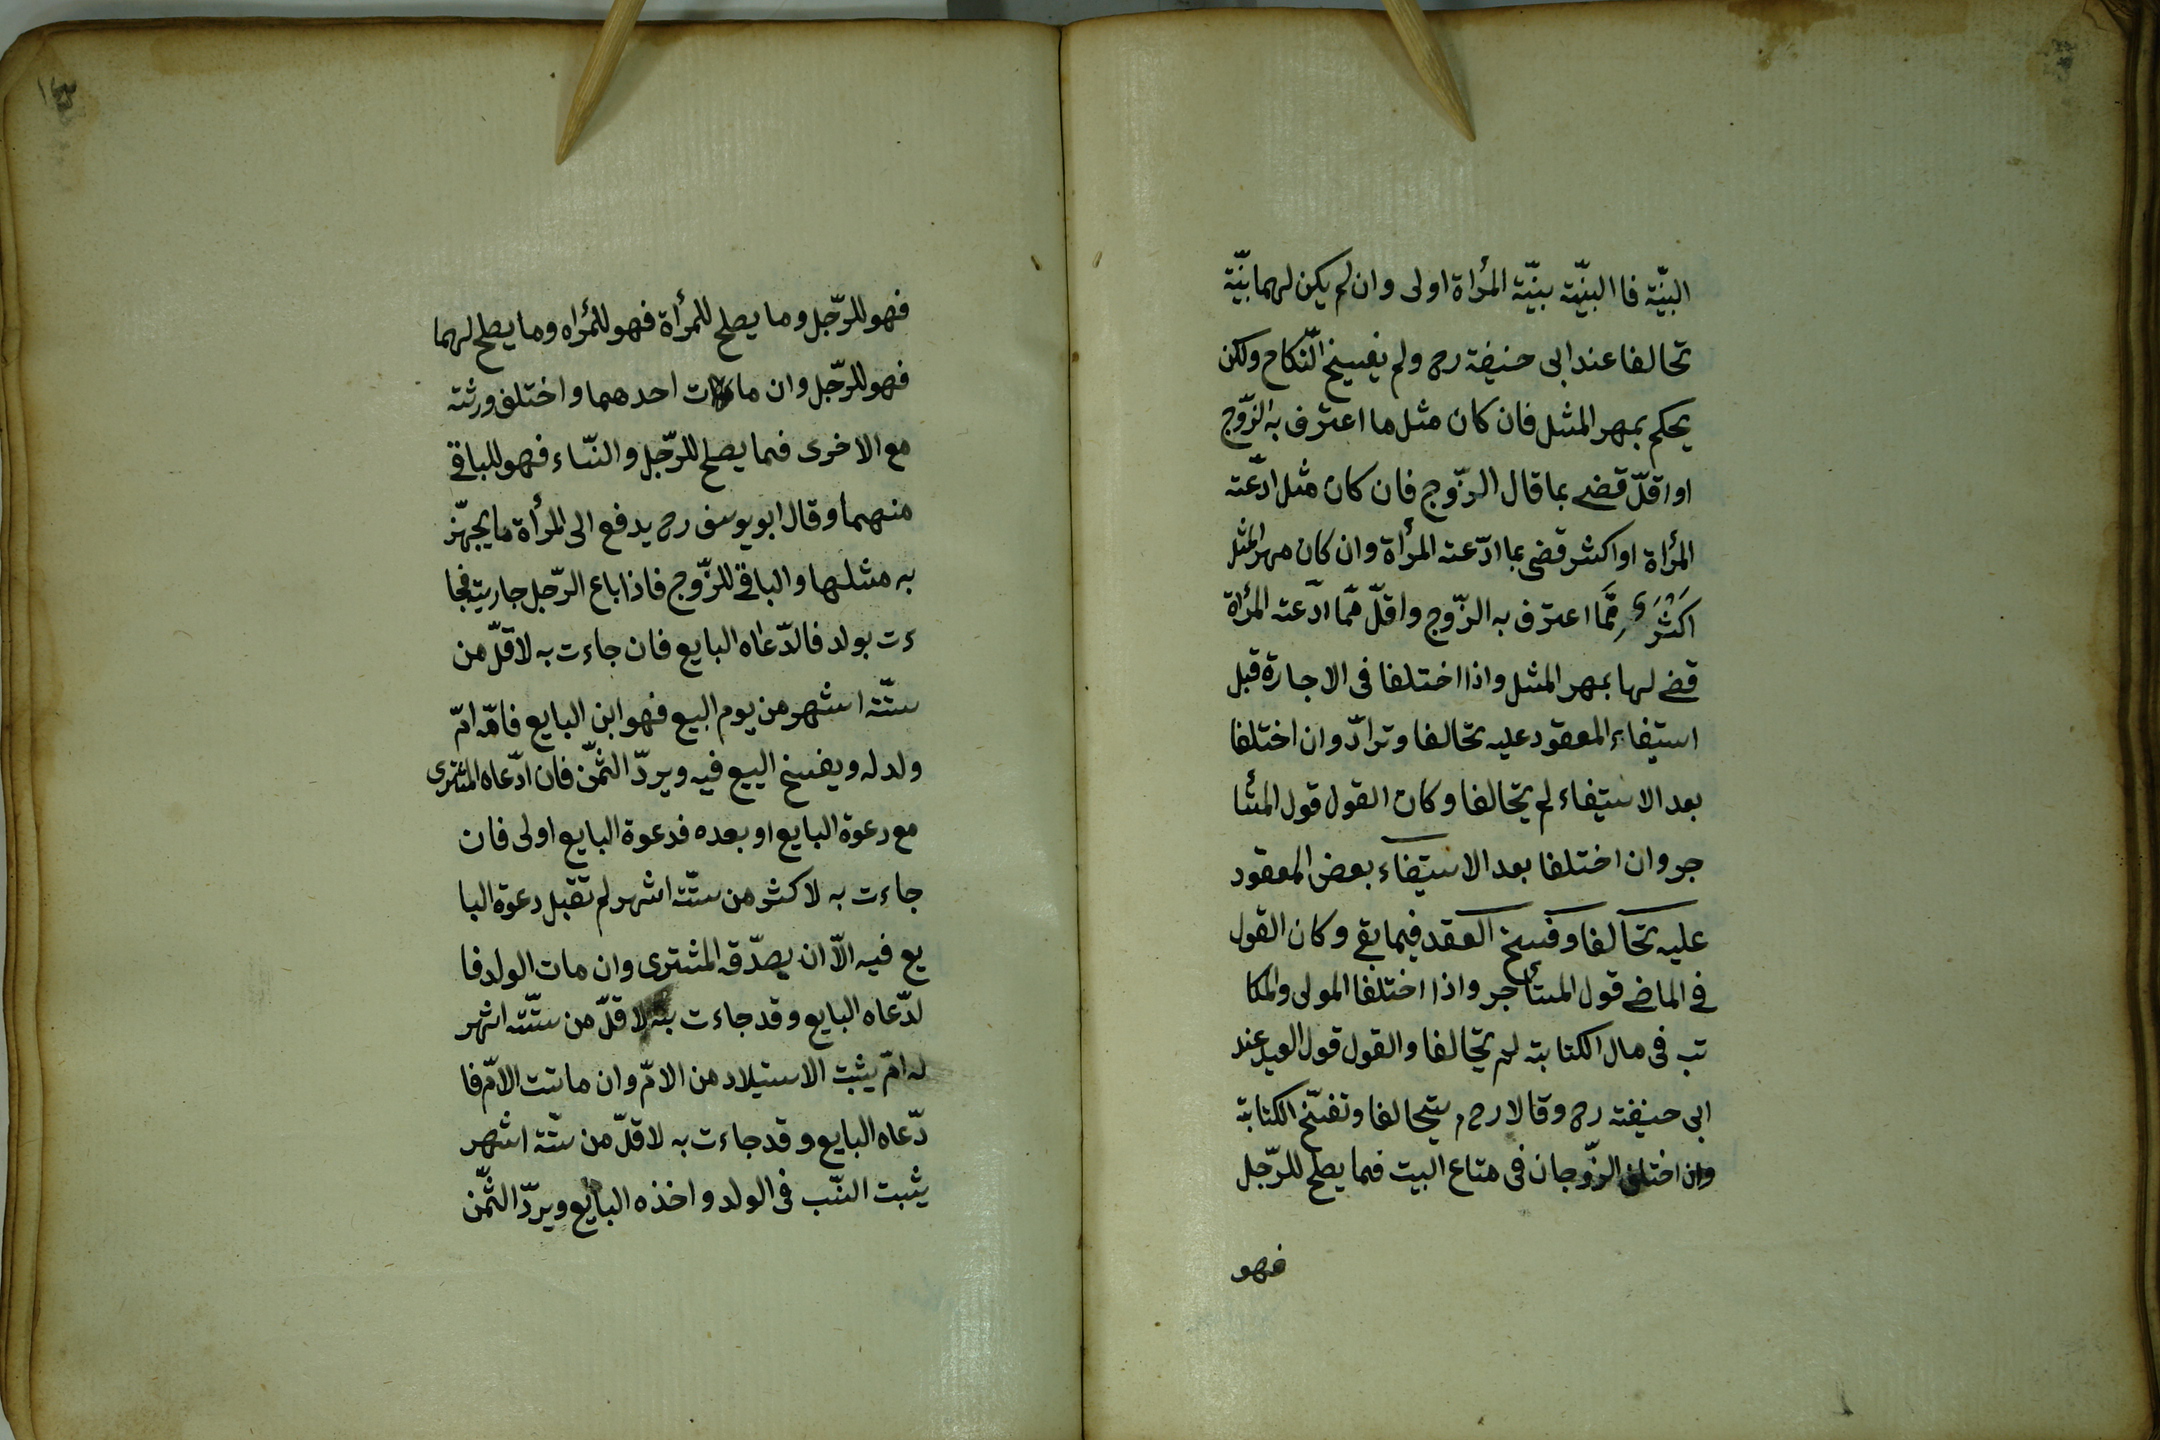 البيّنة فا البيّنة بيّنة المرأة اولى وان لم يكن لهما بيّنة
تحالفا عند ابى حنيفة رح ولم يفسخ النّكاح ولكن
يحكم بمهر المثل فان كان مثل ما اعترف به الزّوج
او اقلّ قضى بما قال الزّوج فان كان مثل ادّعته
المرأة او اكثر قضى بما ادّعته المرأة وان كان مهر المثل
اكثر ممّا اعترف به الزّوج واقلّ ممّا ادّعته المرأة
قضى لها بمهر المثل واذا اختلفا فى الاجارة قبل
استيفاء المعقود عليه تحالفا وترادّ وان اختلفا
بعد الاستيفاء لم يتحالفا وكان القول قول المستأ
جر وان اختلفا بعد الاستيفاء بعض المعقود
عليه تحالفا وفسخ العقد فيما بقى وكان القول
فى الماضى قول المستأجر واذا اختلفا المولى والمكا
تب فى مال الكتابة لم يتحالفا والقول قول العبد عند
ابى حنيفة رح وقالا رح يتحالفا وتفسخ الكتابة
وان اختلف الزّوجان فى متاع البيت فما يصلح للرّجل
فهو
١٤٣
فهو للرّجل وما يصلح للمرأة فهو للمرأه وما يصلح لهما
فهو للرّجل وان مات احدهما واختلف ورثته
مع الاخرى فما يصلح للرّجل والنّساء فهو للباقى
منهما وقال ابو يوسف رح يدفع الى المرأة ما يجهّز
به مثلها والباقى للزّوج فاذا باع الرّجل جارية فجا
ءت بولد فالدّعاه البايع فان جاءت به لاقلّ من
ستّة اشهر من يوم البيع فهو ابن البايع فامّه امّ
ولد له ويفسخ البيع فيه ويردّ الثّمن فان ادّعاه المشترى
مع دعوة البايع او بعده فدعوة البايع اولى فان
جاءت به لاكثر من ستّة اشهر لم تقبل دعوة البا
يع فيه الّا ان يصدّقه المشترى وان مات الولد فا
لدّعاه البايع وقد جاءت به لاقلّ من ستّة اشهر
له امّ يثبت الاستيلاد من الامّ وان ماتت الامّ فا
دّعاه البايع وقد جاءت به لاقلّ من ستّة اشهر
يثبت النّسب فى الولد واخذه البايع ويردّ الثّمن